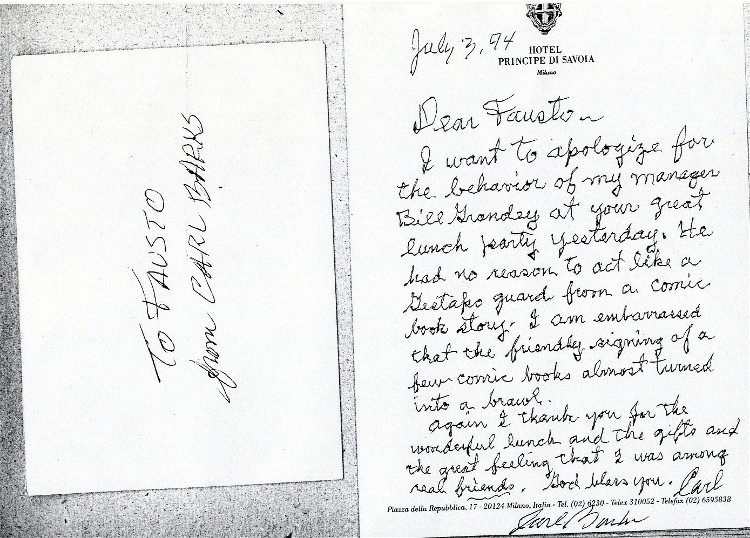 TO FAUSTO
from CARL BARKS
July 3, 94
HOTEL
PRINCIPE DI SAVOIA
Milano
Dear Fausto
I want to apologize for
the behavior of my manager
Bill Grandey at your great
lunch party yesterday. He
had no reason to act like a
Gestapo guard from a comic
book story. I am embarrassed
that the friendly signing of a
few comic books almost turned
into a brawl.
Again I thank you for the
wonderful lunch and the gifts and
the great feeling that I was among
real friends. God bless you. Carl
Piazza della Repubblica, 17 - 20124 Milano, Italia - Tel. (02) 6230 - Telex 310052 - Telefax (02) 6595838
Carl Barks